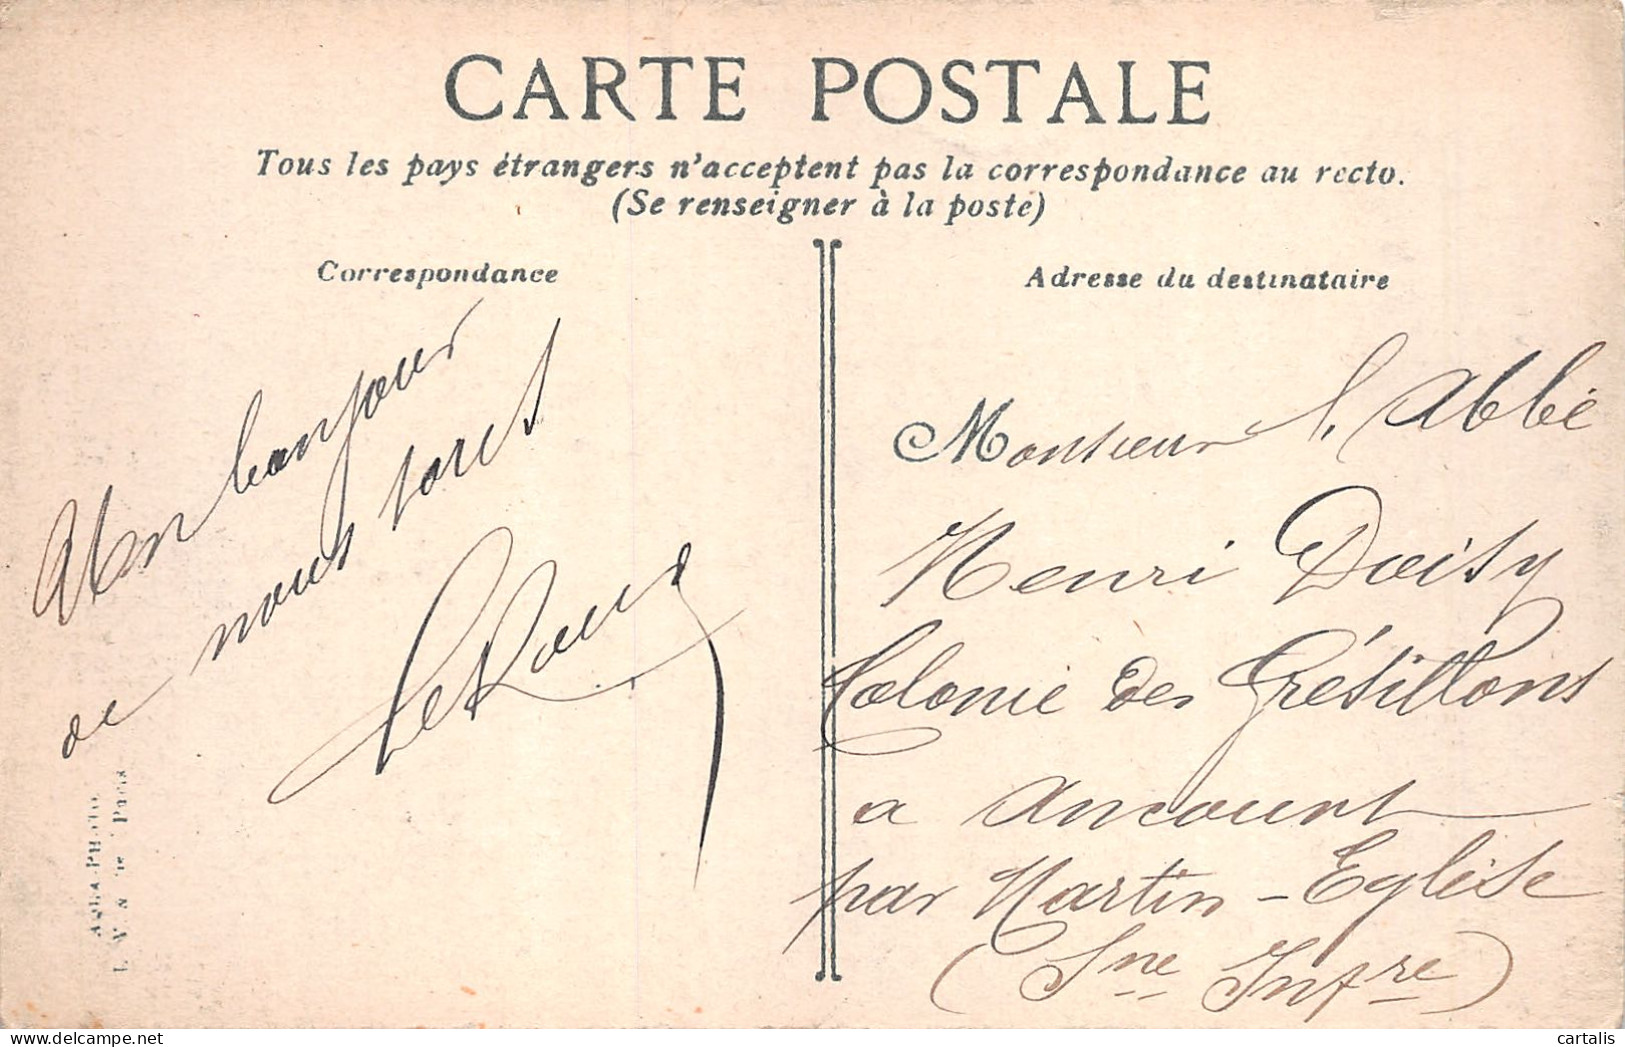 CARTE POSTALE
Tous les pays étrangers n'acceptent pas la correspondance au recto.
(Se renseigner à la poste)
Correspondance
Un bonjour
de nous tous
Le Roux
Adresse du destinataire
Monsieur l'Abbé
Henri Daisy
Colonie des Grésillons
a Ancourt
par Martin-Eglise
(Sne Infre)
Paris
cartalis